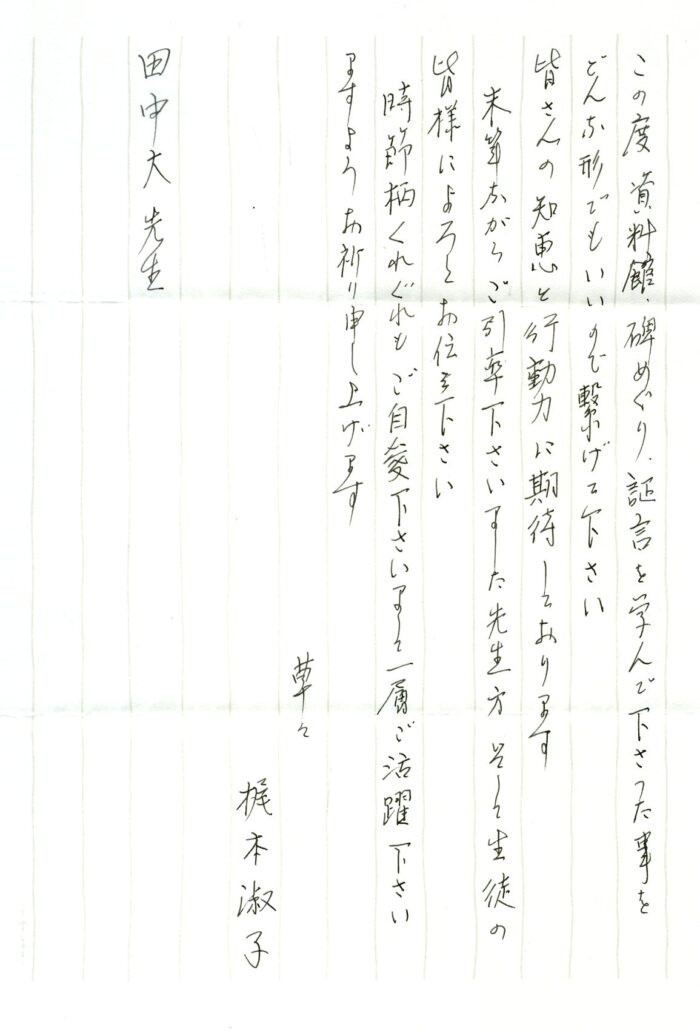 この度資料館、碑めぐり、証言を学んで下さった事を
どんな形でもいいので繋げて下さい
皆さんの知恵と行動力に期待しております
末筆ながらご引率下さいました先生方 そして生徒の
皆様によろしくお伝え下さい
時節柄くれぐれもご自愛下さいまして一層ご活躍下さい
ますようお祈り申し上げます
草々
梶本淑子
田中大先生